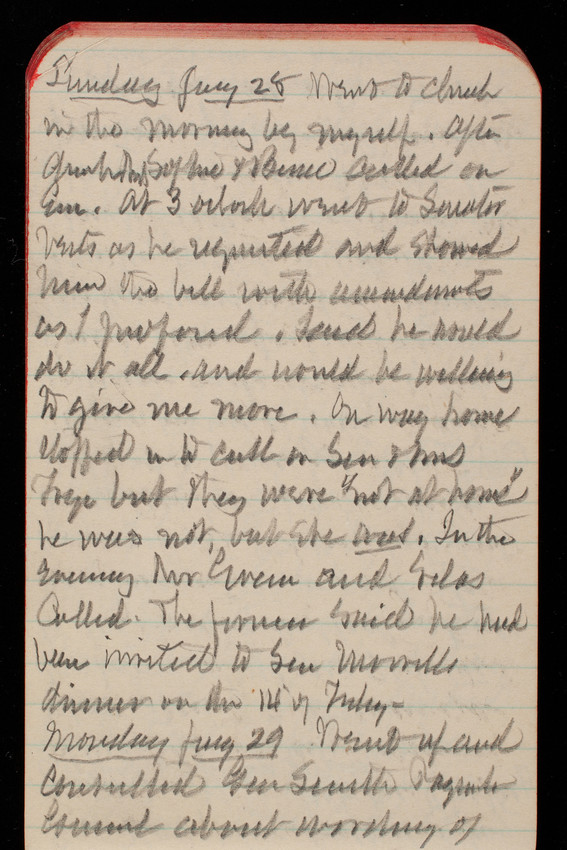 Sunday Jany 28 Went to church
in the morning by myself. After
Sophie & called on
Em. At 3 oclock went to Senator
Vests as he requested and showed
him the bill with amendments
as I proposed. Said he would
do it all, and would be willing
to give me more. On way home
stopped in to call on Gen & Mrs
but they were "not at home"
he was not, but she was. In the
evening Mr and
called. The former said he had
been invited to Gen
dinner on the 14 of Feby-
Monday Jany 29 Went up and
consulted Gen Smith
about wording of